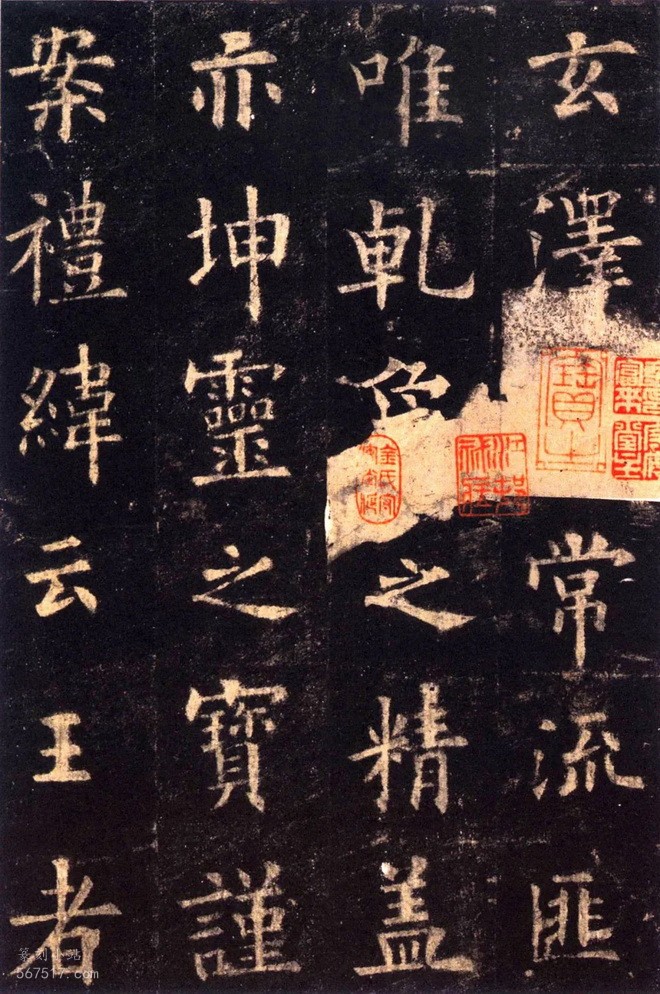 玄澤常流匪
唯乹之精盖
亦坤靈之寶謹
案禮緯云王者
篆刻小站
567517.com